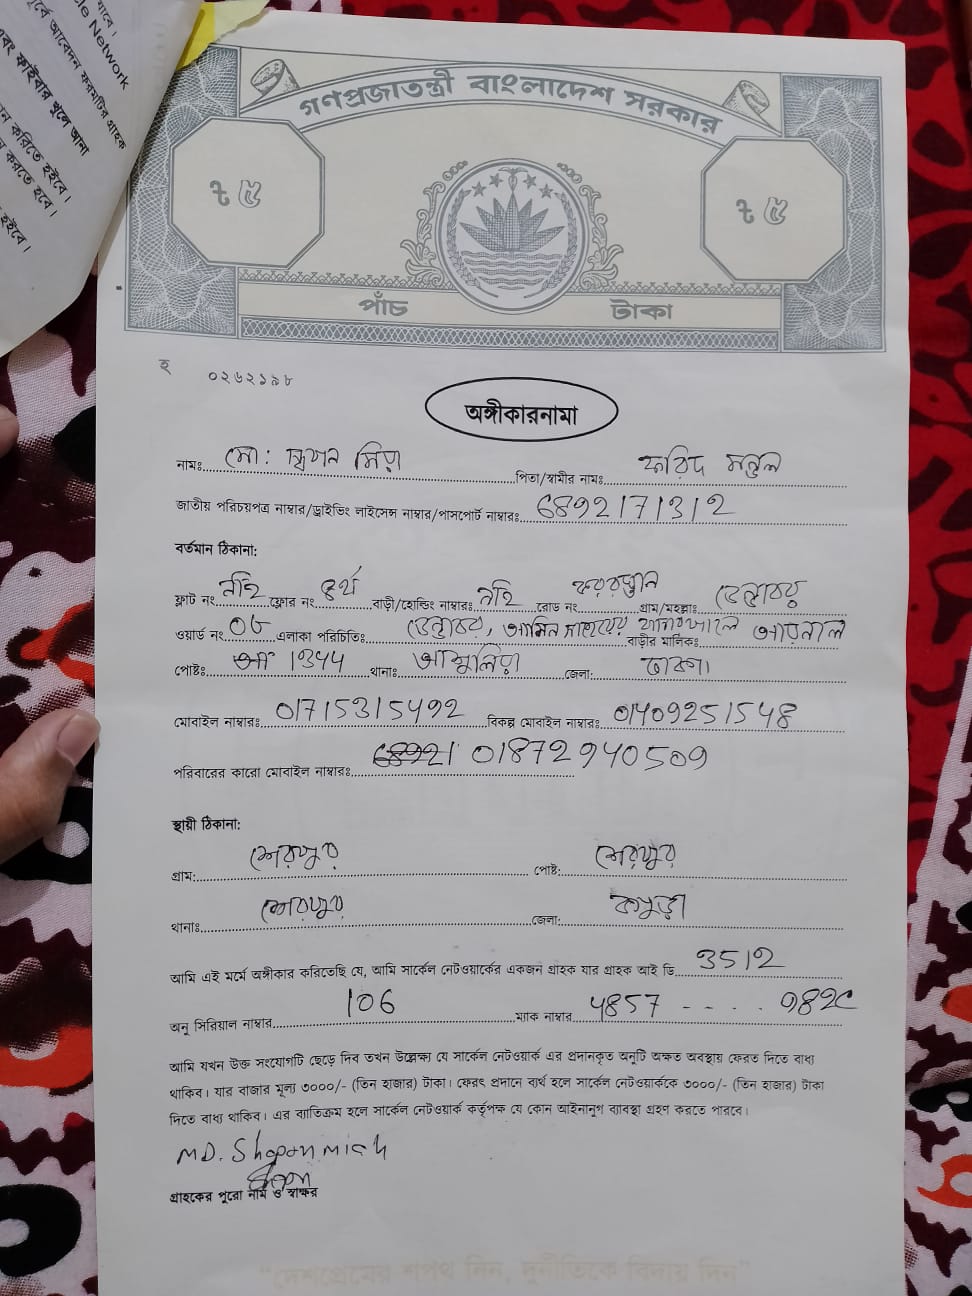 যাবে।
le Network
পূর্বে আবেদন ফরমটির গ্রাহক
এবং ফাইবার খুলে আনা
ন করিতে হইবে।
করতে হবে।
হইবে।
গণপ্রজাতন্ত্রী বাংলাদেশ সরকার
৳ ৫
৳ ৫
পাঁচ টাকা
হ ০২৬২১৯৮
অঙ্গীকারনামা
নামঃ মো: স্বপন মিয়া পিতা/স্বামীর নামঃ ফরিদ মন্ডল
জাতীয় পরিচয়পত্র নাম্বার/ড্রাইভিং লাইসেন্স নাম্বার/পাসপোর্ট নাম্বারঃ 6892171312
বর্তমান ঠিকানা:
ফ্লাট নং নাই ফ্লোর নং ৪র্থ বাড়ী/হোল্ডিং নাম্বারঃ নাই রোড নং কবরস্থান গ্রাম/মহল্লাঃ
ওয়ার্ড নং 08 এলাকা পরিচিতিঃ বাড়ীর মালিকঃ
পোষ্টঃ 1344 থানাঃ আশুলিয়া জেলা: ঢাকা
মোবাইল নাম্বারঃ 01715315492 বিকল্প মোবাইল নাম্বারঃ 01409251548
পরিবারের কারো মোবাইল নাম্বারঃ 01872940509
স্থায়ী ঠিকানা:
গ্রাম: শেরপুর পোষ্ট: শেরপুর
থানাঃ শেরপুর জেলা: বগুড়া
আমি এই মর্মে অঙ্গীকার করিতেছি যে, আমি সার্কেল নেটওয়ার্কের একজন গ্রাহক যার গ্রাহক আই ডি 3512
অনু সিরিয়াল নাম্বার 106 ম্যাক নাম্বার 4857 - - . . . 982C
আমি যখন উক্ত সংযোগটি ছেড়ে দিব তখন উল্লেক্ষ্য যে সার্কেল নেটওয়ার্ক এর প্রদানকৃত অনুটি অক্ষত অবস্থায় ফেরত দিতে বাধ্য
থাকিব। যার বাজার মূল্য ৩০০০/- (তিন হাজার) টাকা। ফেরৎ প্রদানে ব্যর্থ হলে সার্কেল নেটওয়ার্ককে ৩০০০/- (তিন হাজার) টাকা
দিতে বাধ্য থাকিব। এর ব্যতিক্রম হলে সার্কেল নেটওয়ার্ক কর্তৃপক্ষ যে কোন আইনানুগ ব্যবস্থা গ্রহণ করতে পারবে।
MD. Shopon miah
গ্রাহকের পুরো নাম ও স্বাক্ষর
"দেশপ্রেমের শপথ নিন, দুর্নীতিকে বিদায় দিন"